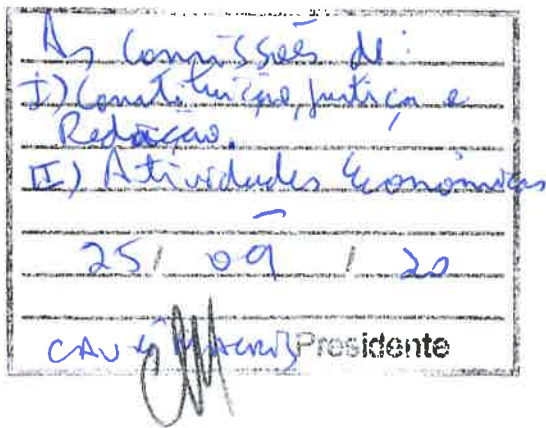 As Comissões de:
I) Constituição, Justiça e
Redação.
II) Atividades Econômicas
25/ 09 / 20
CAUÊ MACRIS Presidente